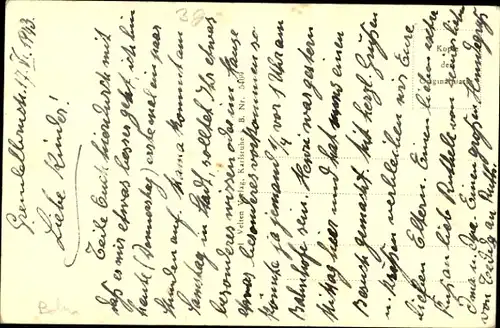 Grombellbuch. 17.V. 1943.
Liebe Kinder!
Teile Euch hierdurch mit
daß es mir etwas besser geht, ich bin
heute (Donnerstag) erste mal ein paar
Stunden auf. Mama kommt am
Samstag in Stadt, solltet Ihr etwas
besonderes wissen oder im Hause
etwas besonderes vorkommen so
könnte ja jemand 1/4 vor 1 Uhr am
Bahnhofe sein. Heini war gestern
Mittag hier und hat uns einen
Besuch gemacht. Mit herzl. Grüßen
u. Küssen verbleiben wir Eure
lieben Eltern. Einen lieben
Kuß an lieb Ruthele von
Oma u. Opa. Einen großen
von an Ruth.
Velten Verlag, Karlsruhe i. B. Nr.